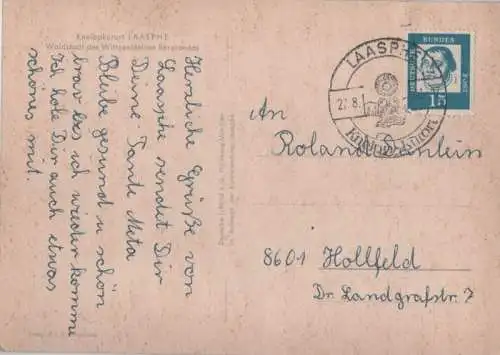 Kneippkurort LAASPHE
Waldstadt des Wittgensteiner Berglandes
Herzliche Grüße von
Laasphe sendet Dir
Deine Tante Meta
Bleibe gesund u schön
brav bis ich wieder komme
Ich hole Dir auch etwas
schönes mit.
LAASPHE
27.8.
DEUTSCHE
BUNDES
POST
15
An
Roland
8601 Hollfeld
Dr. Landgrafstr. 7